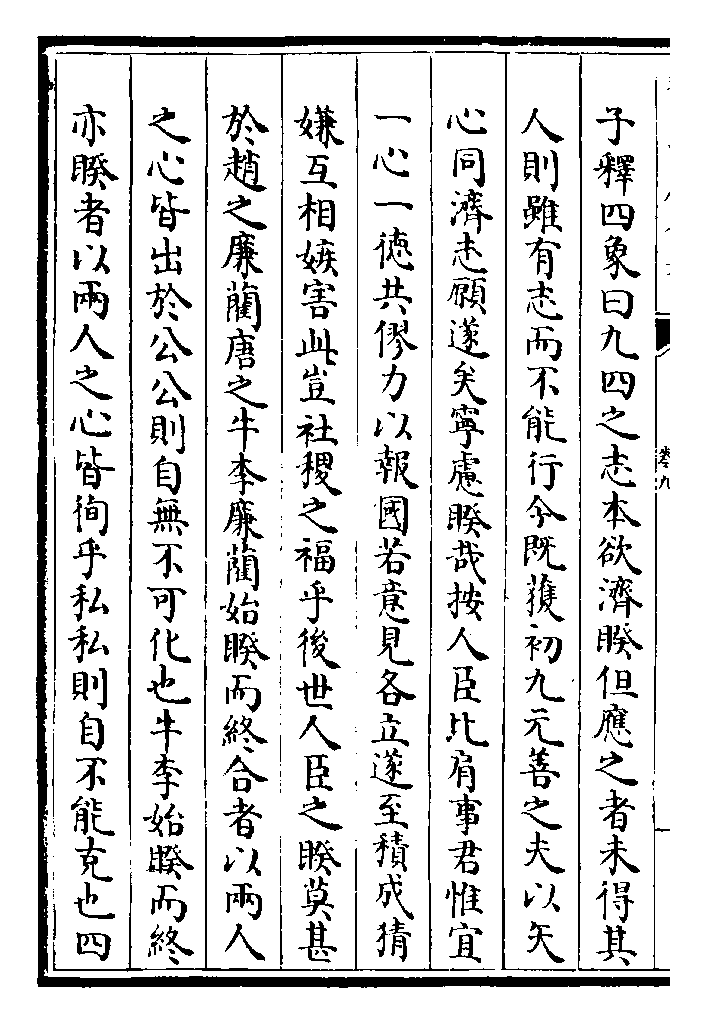 子釋四象曰九四之志本欲濟睽但應之者未得其
人則雖有志而不能行今既獲初九元善之夫以矢
心同濟志願遂矣寧慮睽哉按人臣比肩事君惟宜
一心一德共僇力以報國若意見各立遂至積成猜
嫌互相嫉害此豈社稷之福乎後世人臣之睽莫甚
於趙之廉藺唐之牛李廉藺始睽而終合者以兩人
之心皆出於公公則自無不可化也牛李始睽而終
亦睽者以兩人之心皆徇乎私私則自不能克也四
卷九